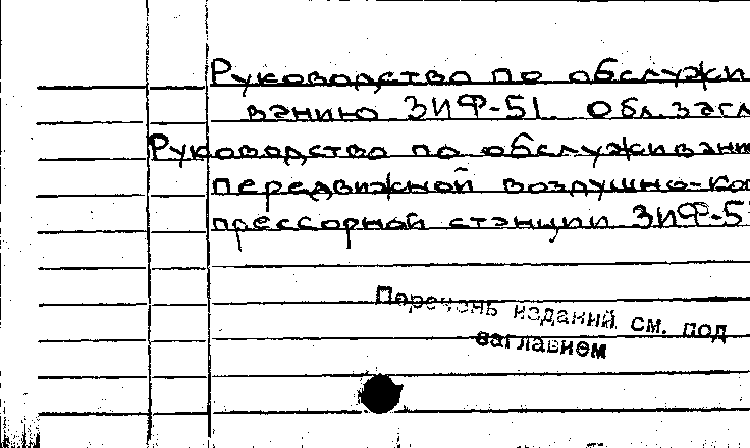 Руководство по обслужи
ванию ЗИФ-51. Обл. загл
Руководство по обслуживани
передвижной воздушно-ком
прессорной станции ЗИФ-5
Перечень изданий см. под
заглавием